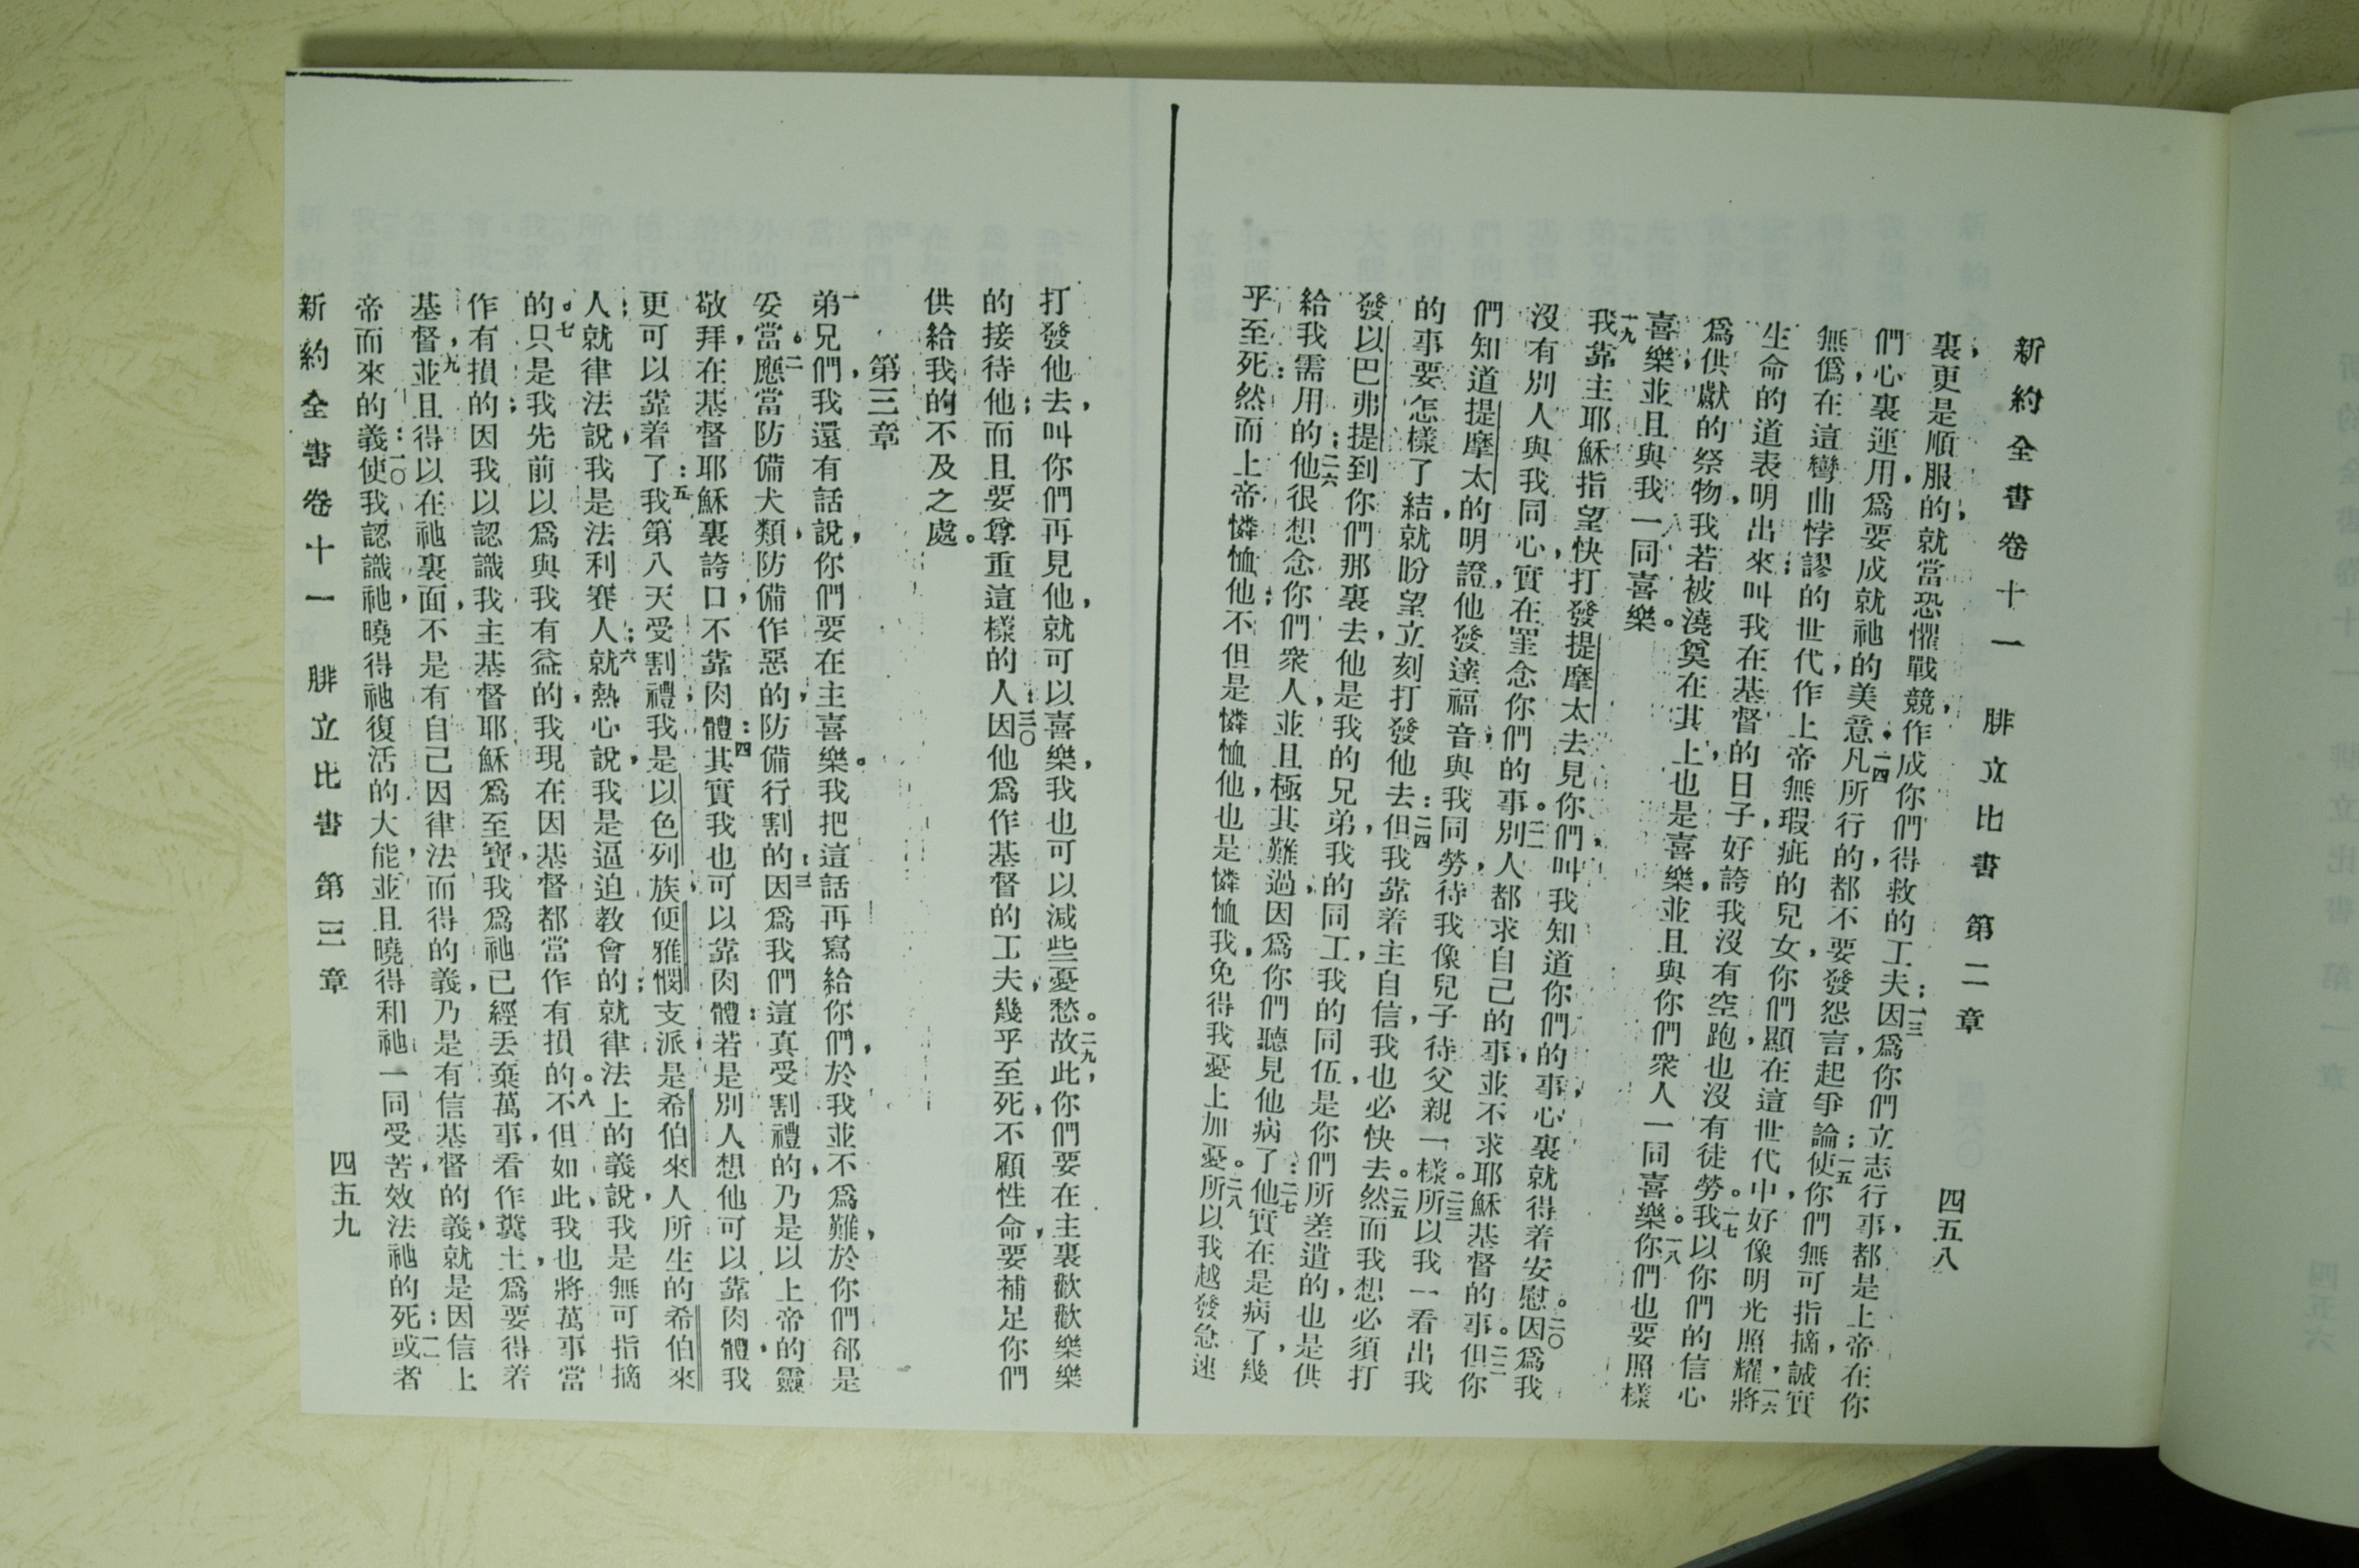 新約全書卷十一 腓立比書 第二章 四五八
裏、更是順服的、就當恐懼戰競、作成你們得救的工夫；一三因爲你們立志行事、都是上帝在你
們心裏運用、爲要成就祂的美意。一四凡所行的、都不要發怨言、起爭論；一五使你們無可指摘、誠實
無僞、在這彎曲悖謬的世代、作上帝無瑕疵的兒女、你們顯在這世代中、好像明光照耀、一六將
生命的道表明出來；叫我在基督的日子、好誇我沒有空跑、也沒有徒勞。一七我以你們的信心
爲供獻的祭物、我若被澆奠在其上、也是喜樂、並且與你們衆人一同喜樂。一八你們也要照樣
喜樂、並且與我一同喜樂。
一九我靠主耶穌指望快打發提摩太去見你們、叫我知道你們的事、心裏就得着安慰。二〇因爲我
沒有別人與我同心、實在罣念你們的事。二一別人都求自己的事、並不求耶穌基督的事。二二但你
們知道提摩太的明證、他發達福音、與我同勞、待我像兒子待父親一樣。二三所以我一看出我
的事要怎樣了結、就盼望立刻打發他去：二四但我靠着主自信、我也必快去。二五然而我想必須打
發以巴弗提到你們那裏去、他是我的兄弟、我的同工、我的同伍、是你們所差遣的、也是供
給我需用的；二六他很想念你們衆人、並且極其難過、因爲你們聽見他病了：二七他實在是病了、幾
乎至死：然而上帝憐恤他；不但是憐恤他、也是憐恤我、免得我憂上加憂。二八所以我越發急速
打發他去、叫你們再見他、就可以喜樂、我也可以減些憂愁。二九故此、你們要在主裏歡歡樂樂
的接待他；而且要尊重這樣的人：三〇因他爲作基督的工夫、幾乎至死、不顧性命、要補足你們
供給我的不及之處。
第三章
一弟兄們、我還有話說、你們要在主喜樂。我把這話再寫給你們、於我並不爲難、於你們卻是
妥當。二應當防備犬類、防備作惡的、防備行割的：三因爲我們這真受割禮的、乃是以上帝的靈
敬拜、在基督耶穌裏誇口、不靠肉體：四其實我也可以靠肉體：若是別人想他可以靠肉體、我
更可以靠着了：五我第八天受割禮；我是以色列族、便雅憫支派、是希伯來人所生的希伯來
人；就律法說、我是法利賽人；六就熱心說、我是逼迫教會的；就律法上的義說、我是無可指摘
的。七只是我先前以爲與我有益的、我現在因基督都當作有損的。八不但如此、我也將萬事當
作有損的；因我以認識我主基督耶穌爲至寶；我爲祂已經丟棄萬事、看作糞土、爲要得着
基督、九並且得以在祂裏面、不是有自己因律法而得的義、乃是有信基督的義、就是因信上
帝而來的義：一〇使我認識祂、曉得祂復活的大能、並且曉得和祂一同受苦、效法祂的死；一一或者
新約全書卷十一 腓立比書 第三章 四五九